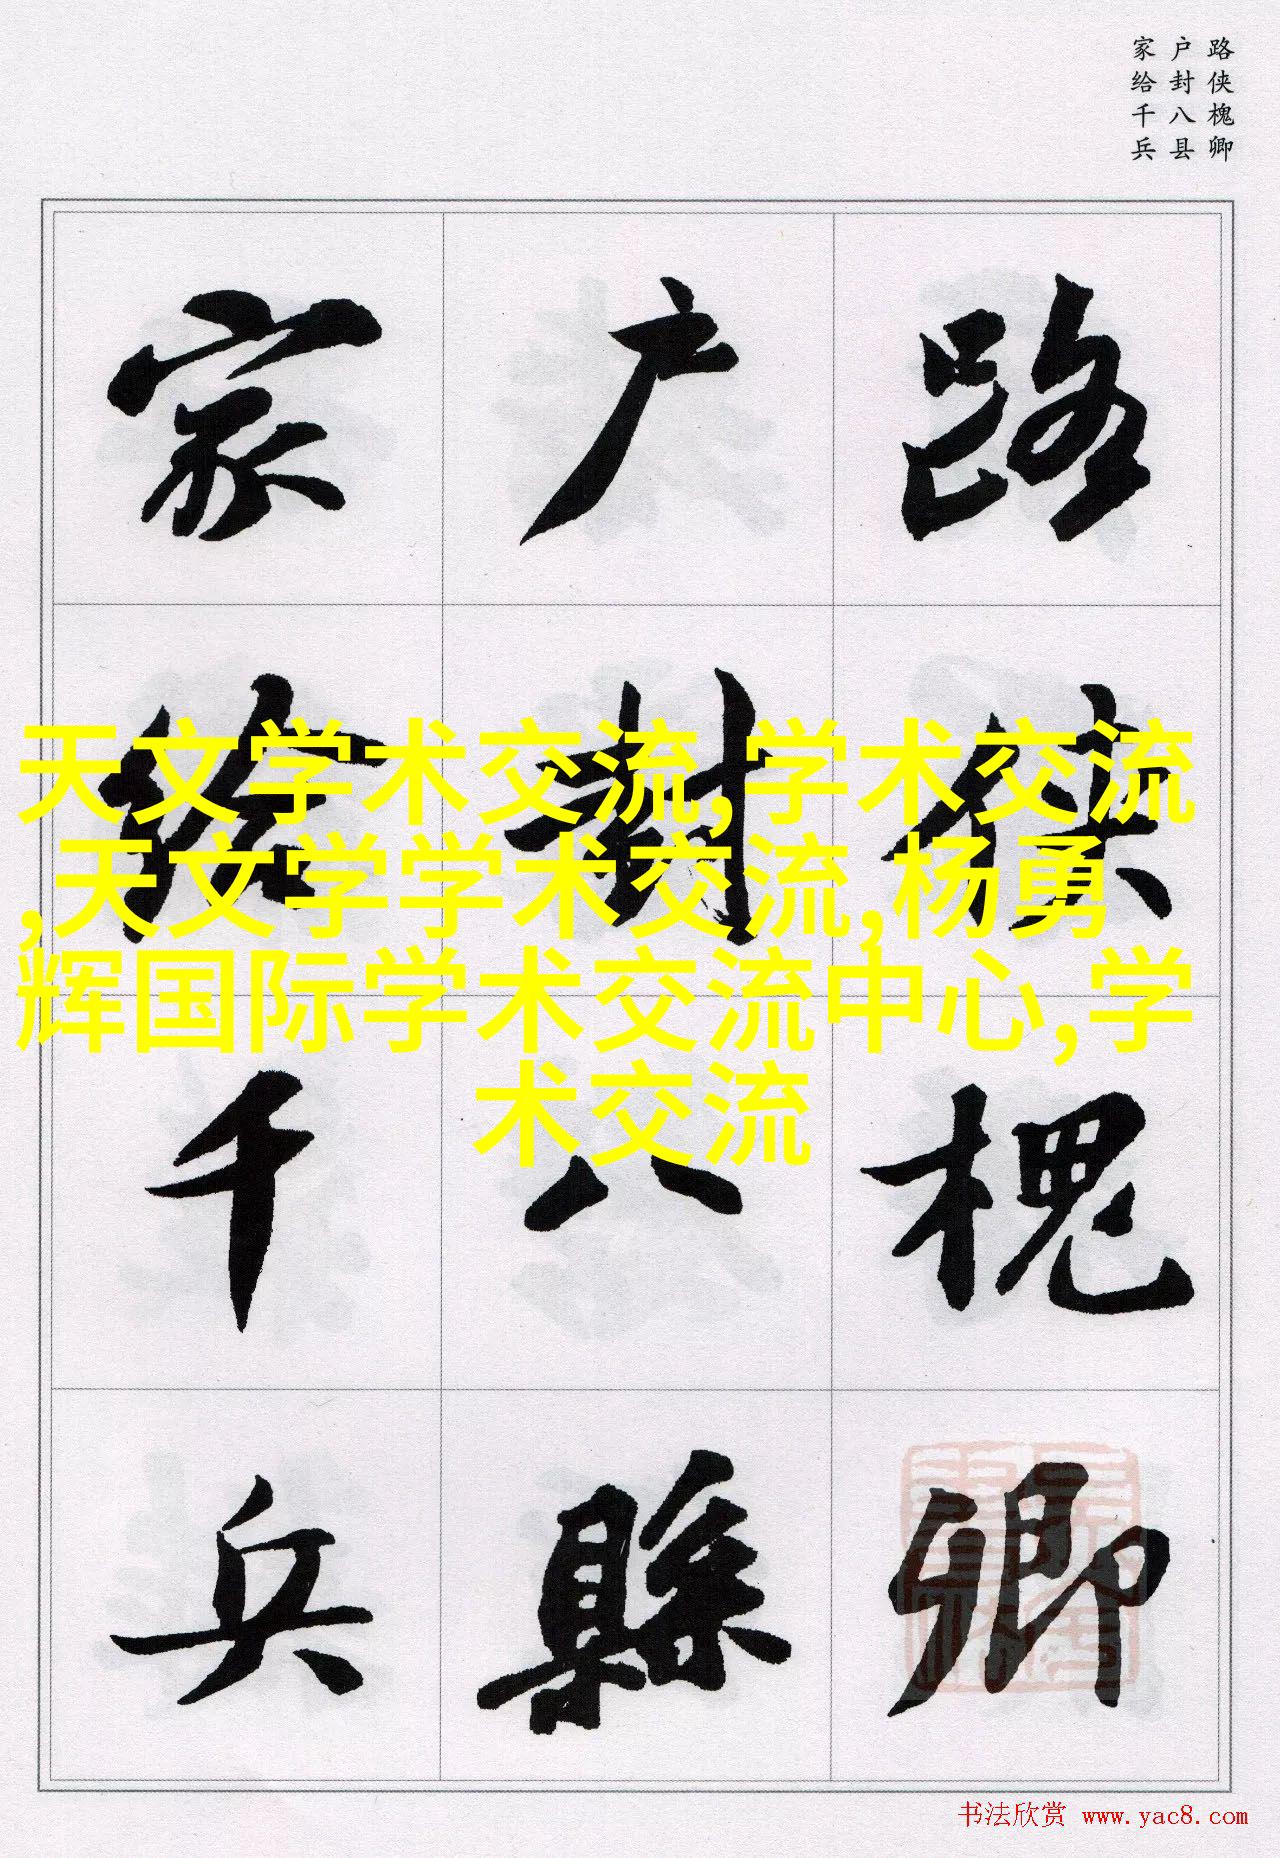 路侠槐卿
户封八县
家给千兵
路侠槐卿
户封八縣
家给千兵
天文学术交流,学术交流
,天文学学术交流,杨勇
辉国际学术交流中心,学
术交流
书法欣赏 www.yac8.com